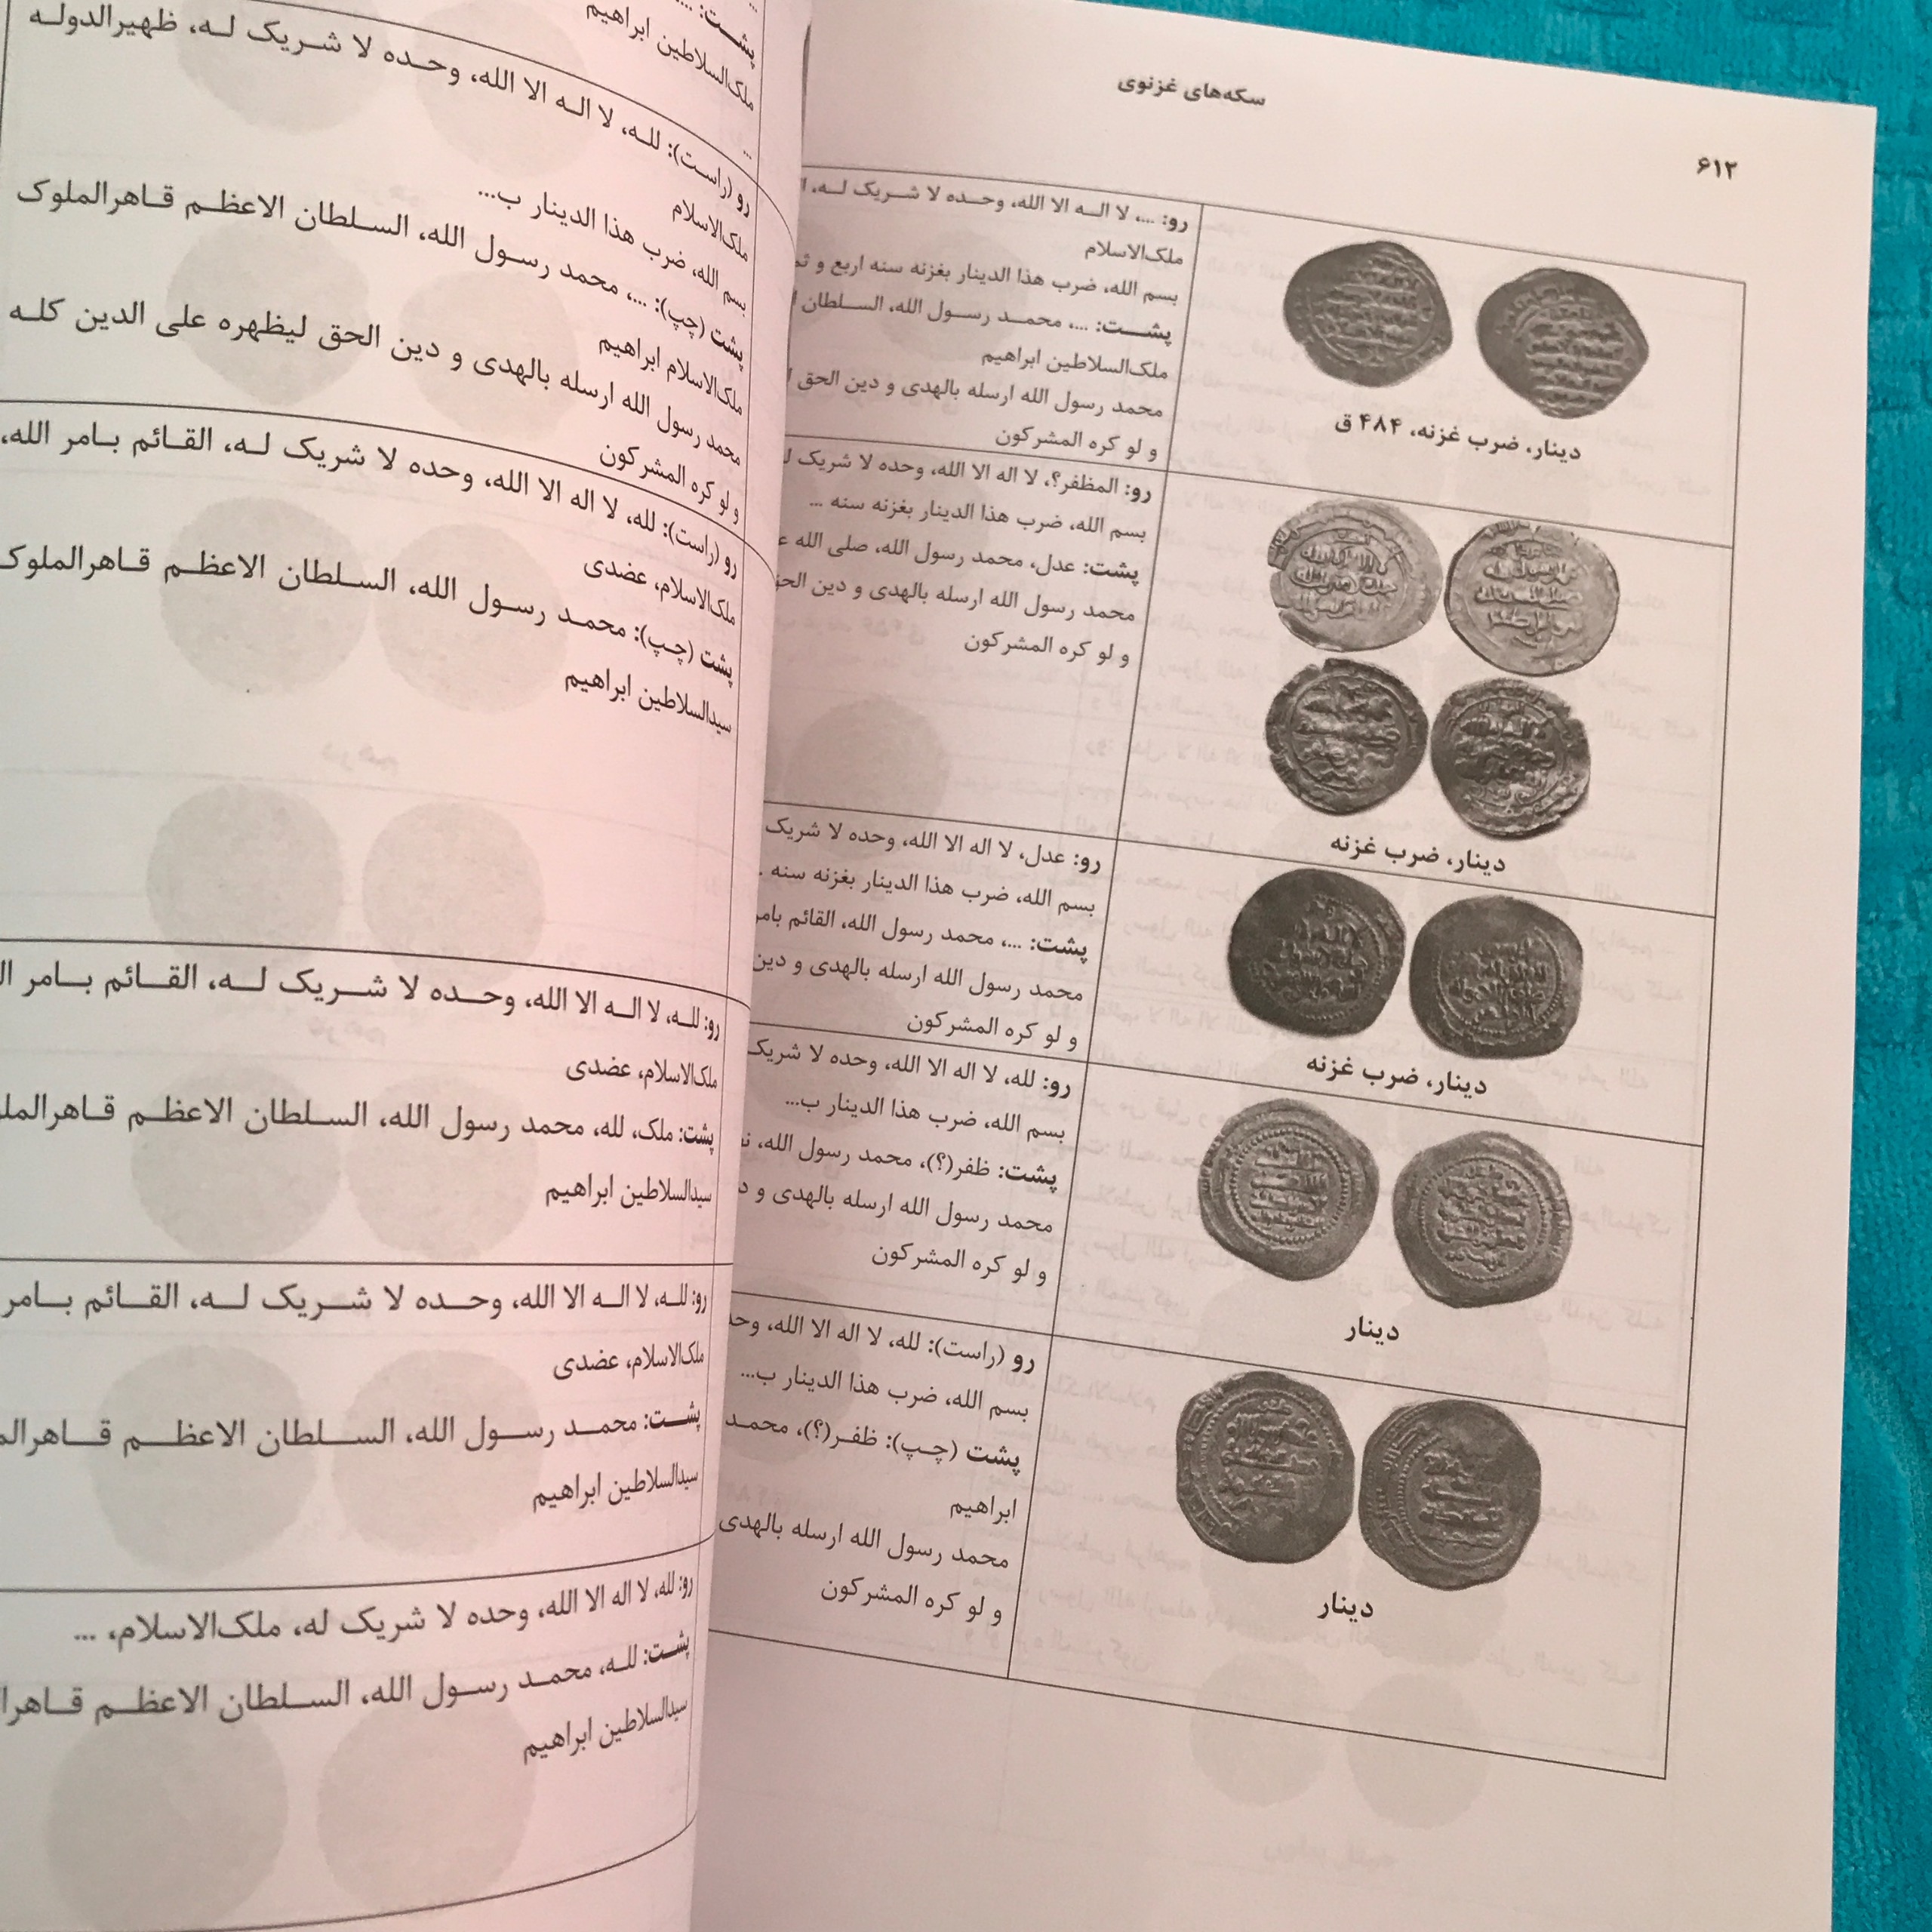 ۶۱۲
سکه‌های غزنوی
رو: ...، لا الــه الا الله، وحــده لا شــریک لــه،
ملک‌الاسلام
بسم الله، ضرب هذا الدینار بغزنه سنه اربع و
پشــــت: ...، محمــد رســول الله، الســلطان
ملک‌السلاطین ابراهیم
محمد رسول الله ارسله بالهدی و دین الحق
و لو کره المشرکون
دینار، ضرب غزنه، ۴۸۴ ق
رو: المظفر؟، لا اله الا الله، وحده لا شریک
بسم الله، ضرب هذا الدینار بغزنه سنه ...
پشت: عدل، محمد رسول الله، صلی الله
محمد رسول الله ارسله بالهدی و دین
و لو کره المشرکون
دینار، ضرب غزنه
رو: عدل، لا اله الا الله، وحده لا شریک
بسم الله، ضرب هذا الدینار بغزنه سنه
پشت: ...، محمد رسول الله، القائم بامر
محمد رسول الله ارسله بالهدی و دین
و لو کره المشرکون
دینار، ضرب غزنه
رو: لله، لا اله الا الله، وحده لا شریک
بسم الله، ضرب هذا الدینار ب...
پشت: ظفر(؟)، محمد رسول الله،
محمد رسول الله ارسله بالهدی و
و لو کره المشرکون
دینار
رو (راست): لله، لا اله الا الله،
بسم الله، ضرب هذا الدینار ب...
پشت (چپ): ظفر(؟)، محمد
ابراهیم
محمد رسول الله ارسله بالهدی
و لو کره المشرکون
دینار
...
پشــت: ...
ملک‌السلاطین ابراهیم
...
رو (راست): للـه، لا الـه الا الله، وحـده لا شـریک لـه، ظهیرالدولـه
ملک‌الاسلام
بسم الله، ضرب هذا الدینار ب...
پشت (چپ): ...، محمد رسـول الله، السـلطان الاعظـم قـاهرالملوک
ملک‌الاسلام ابراهیم
محمد رسول الله ارسله بالهدی و دین الحق لیظهره علی الدین کلـه
و لو کره المشرکون
رو (راست): لله، لا اله الا الله، وحده لا شریک لـه، القـائم بـامر الله،
ملک‌الاسلام، عضدی
پشت (چـپ): محمـد رسـول الله، السـلطان الاعظـم قـاهرالملوک
سیدالسلاطین ابراهیم
رو: للـه، لا الـه الا الله، وحـده لا شـریک لـه، القـائم بـامر
ملک‌الاسلام، عضدی
پشت: ملک، لله، محمد رسول الله، السـلطان الاعظـم
سیدالسلاطین ابراهیم
رو: للـه، لا الـه الا الله، وحـده لا شـریک لـه، القـائم بـامر
ملک‌الاسلام، عضدی
پشــت: محمــد رســول الله، الســلطان الاعظــم
سیدالسلاطین ابراهیم
رو: لله، لا اله الا الله، وحده لا شریک له، ملک‌الاسلام، ...
پشـت: للـه، محمـد رسـول الله، السـلطان الاعظـم
سیدالسلاطین ابراهیم